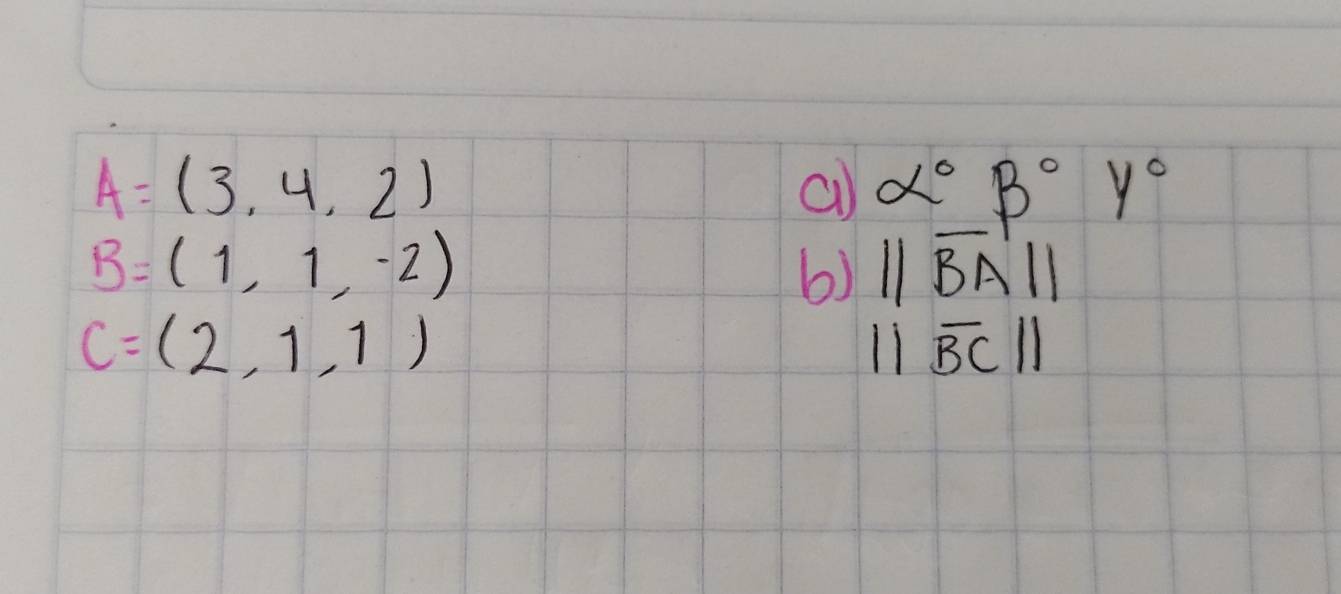 A = (3, 4, 2)
B = (1, 1, -2)
C = (2, 1, 1)
a) α° β° γ°
b) || \overline{BA} ||
|| \overline{BC} ||